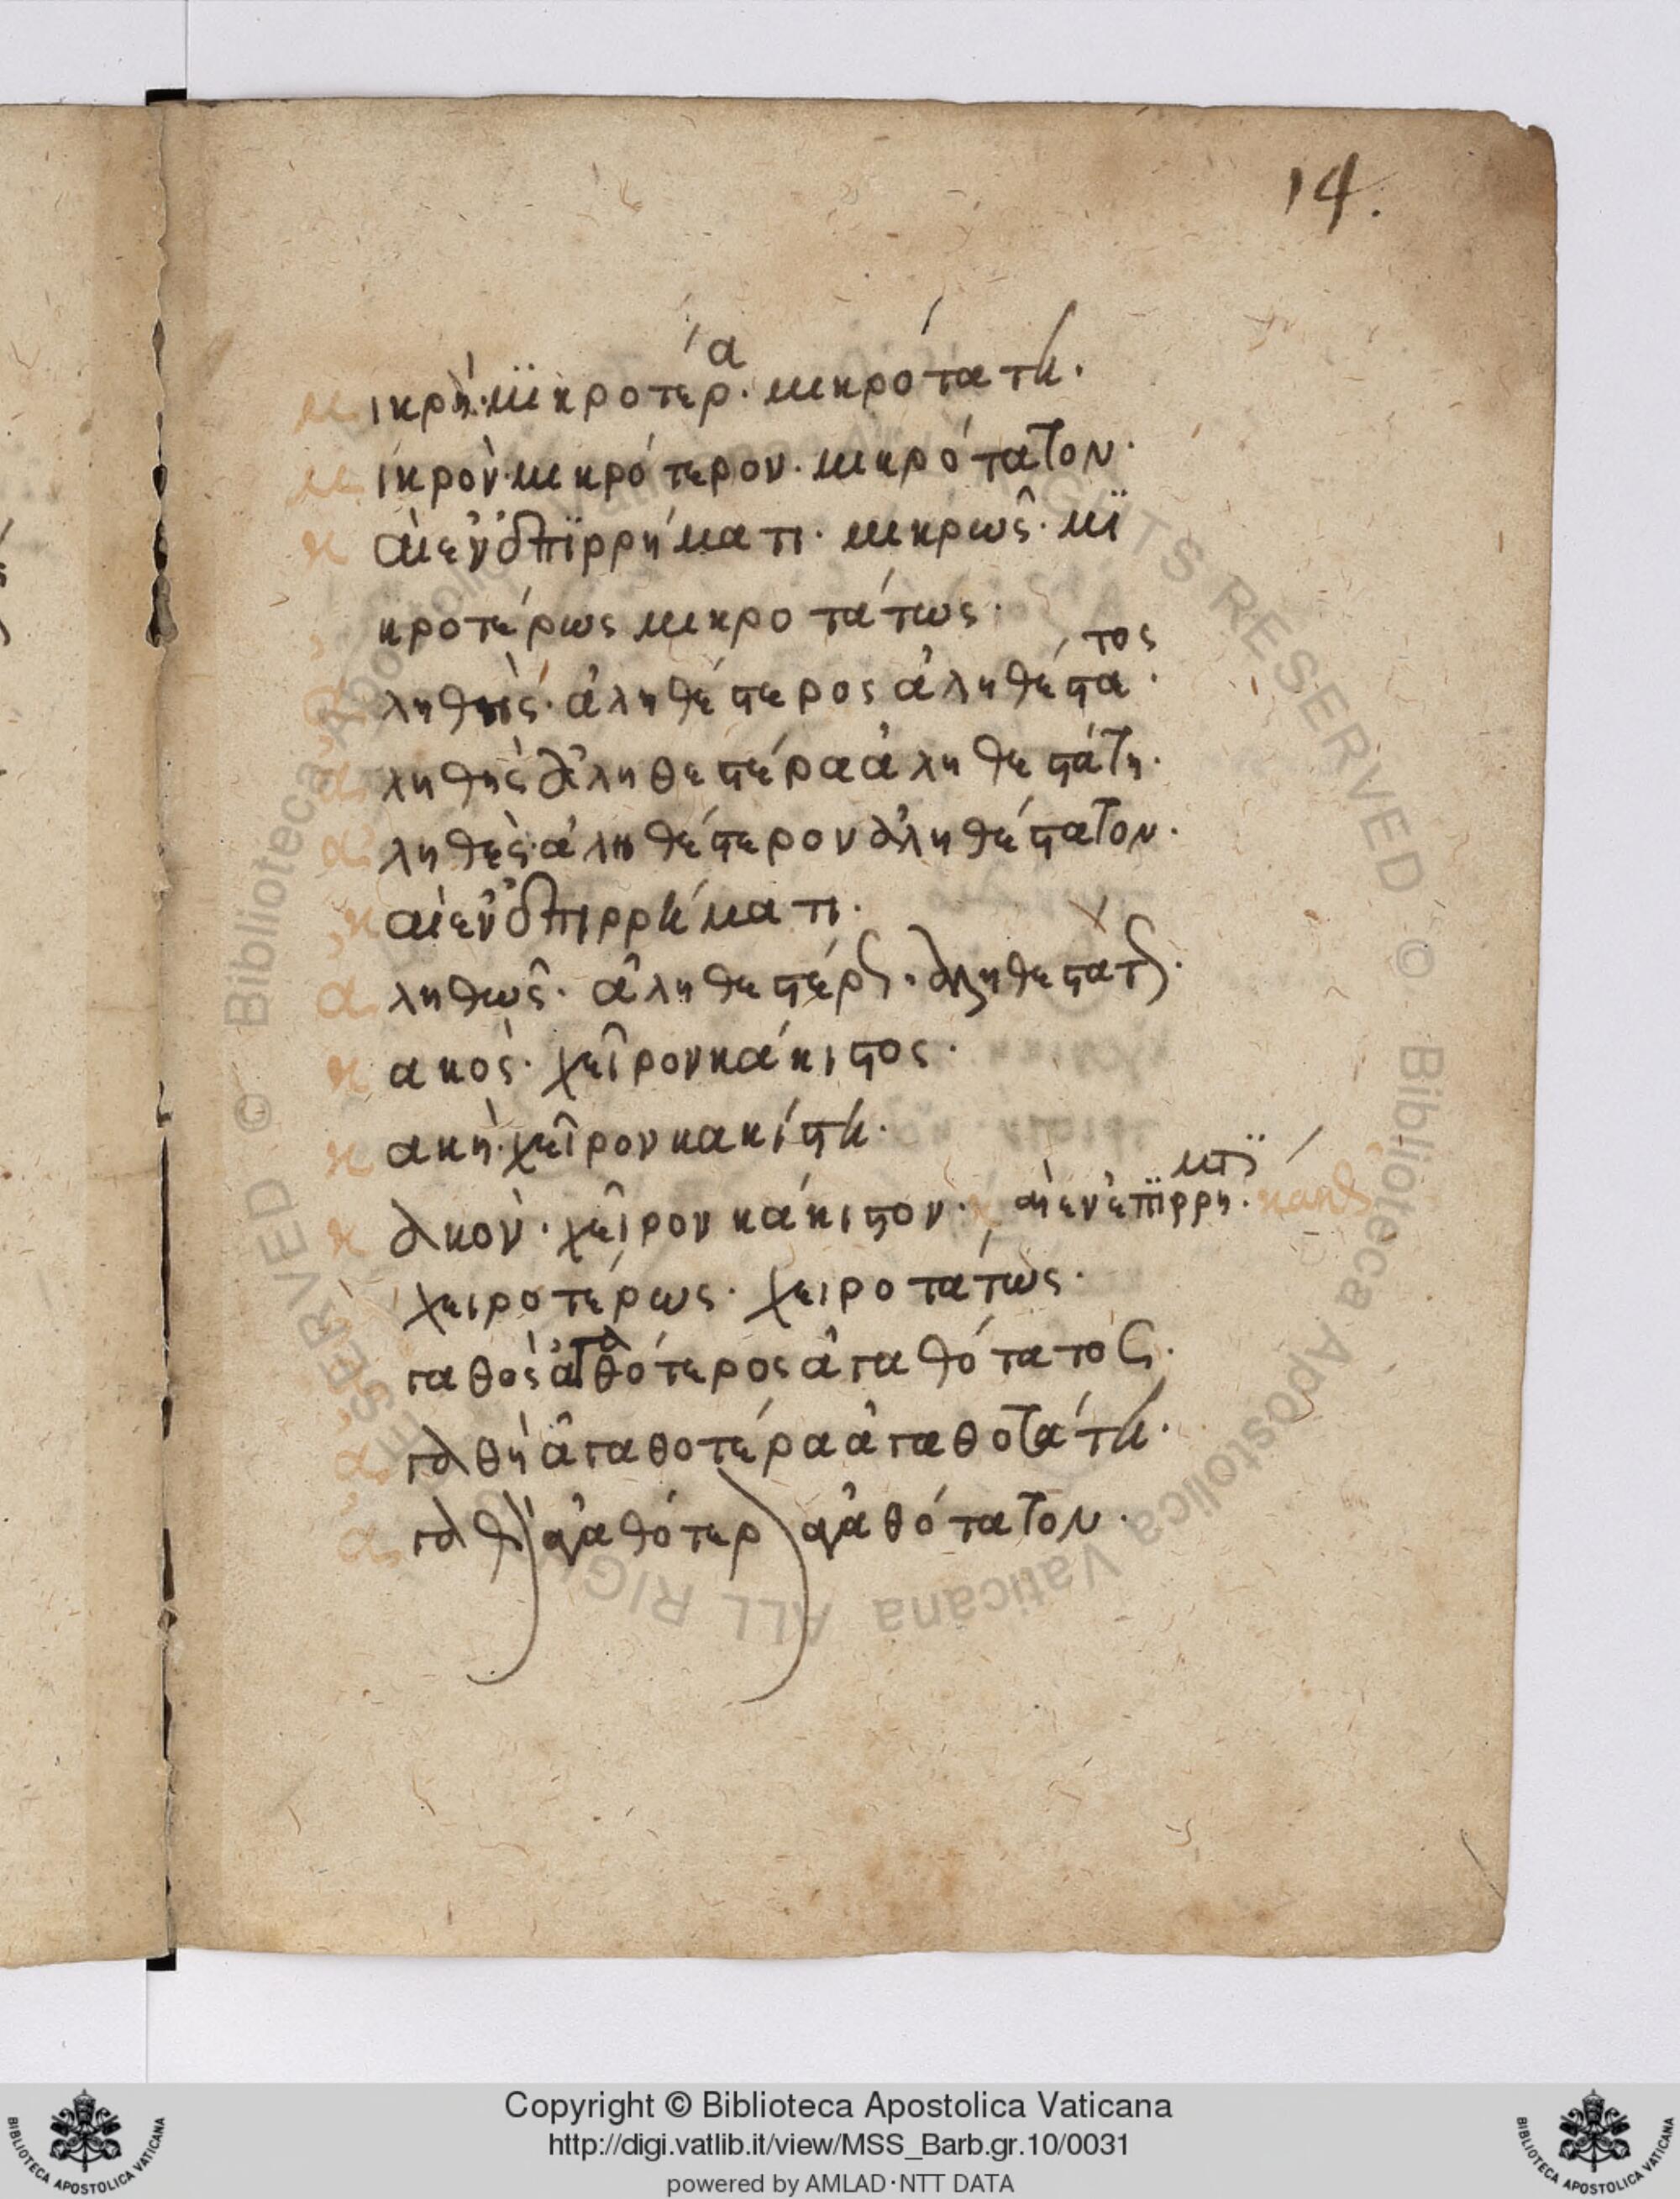 14.
μικρὴ· μϊκροτέρα· μικρότατη·
μικρὸν· μικρότερον· μικρότατον·
καὶ ἐν ἐπϊρρήματι· μικρῶς· μϊ
κροτέρως μικροτάτως·
ἀληθὴς· ἀληθέστερος ἀληθέστατος·
ἀληθὴς ἀληθεστέρα ἀληθεστάτη·
ἀληθὲς· ἀληθέστερον ἀληθέστατον·
καὶ ἐν ἐπιρρήματι·
ἀληθῶς· ἀληθεστέρως· ἀληθεστάτως·
κακὸς· χεῖρον κάκιστος·
κακὴ· χεῖρον κακίστη·
κακὸν· χεῖρον κάκιστον· καὶ ἐν ἐπϊρρήματϊ· κακῶς
χειροτέρως· χειροτάτως·
ἀγαθὸς ἀγαθότερος ἀγαθότατος·
ἀγαθὴ ἀγαθοτέρα ἀγαθοτάτη·
ἀγαθὸν ἀγαθότερον ἀγαθότατον·
© Biblioteca Apostolica Vaticana ALL RIGHTS RESERVED
Copyright © Biblioteca Apostolica Vaticana
http://digi.vatlib.it/view/MSS_Barb.gr.10/0031
powered by AMLAD·NTT DATA
BIBLIOTECA APOSTOLICA VATICANA
BIBLIOTECA APOSTOLICA VATICANA